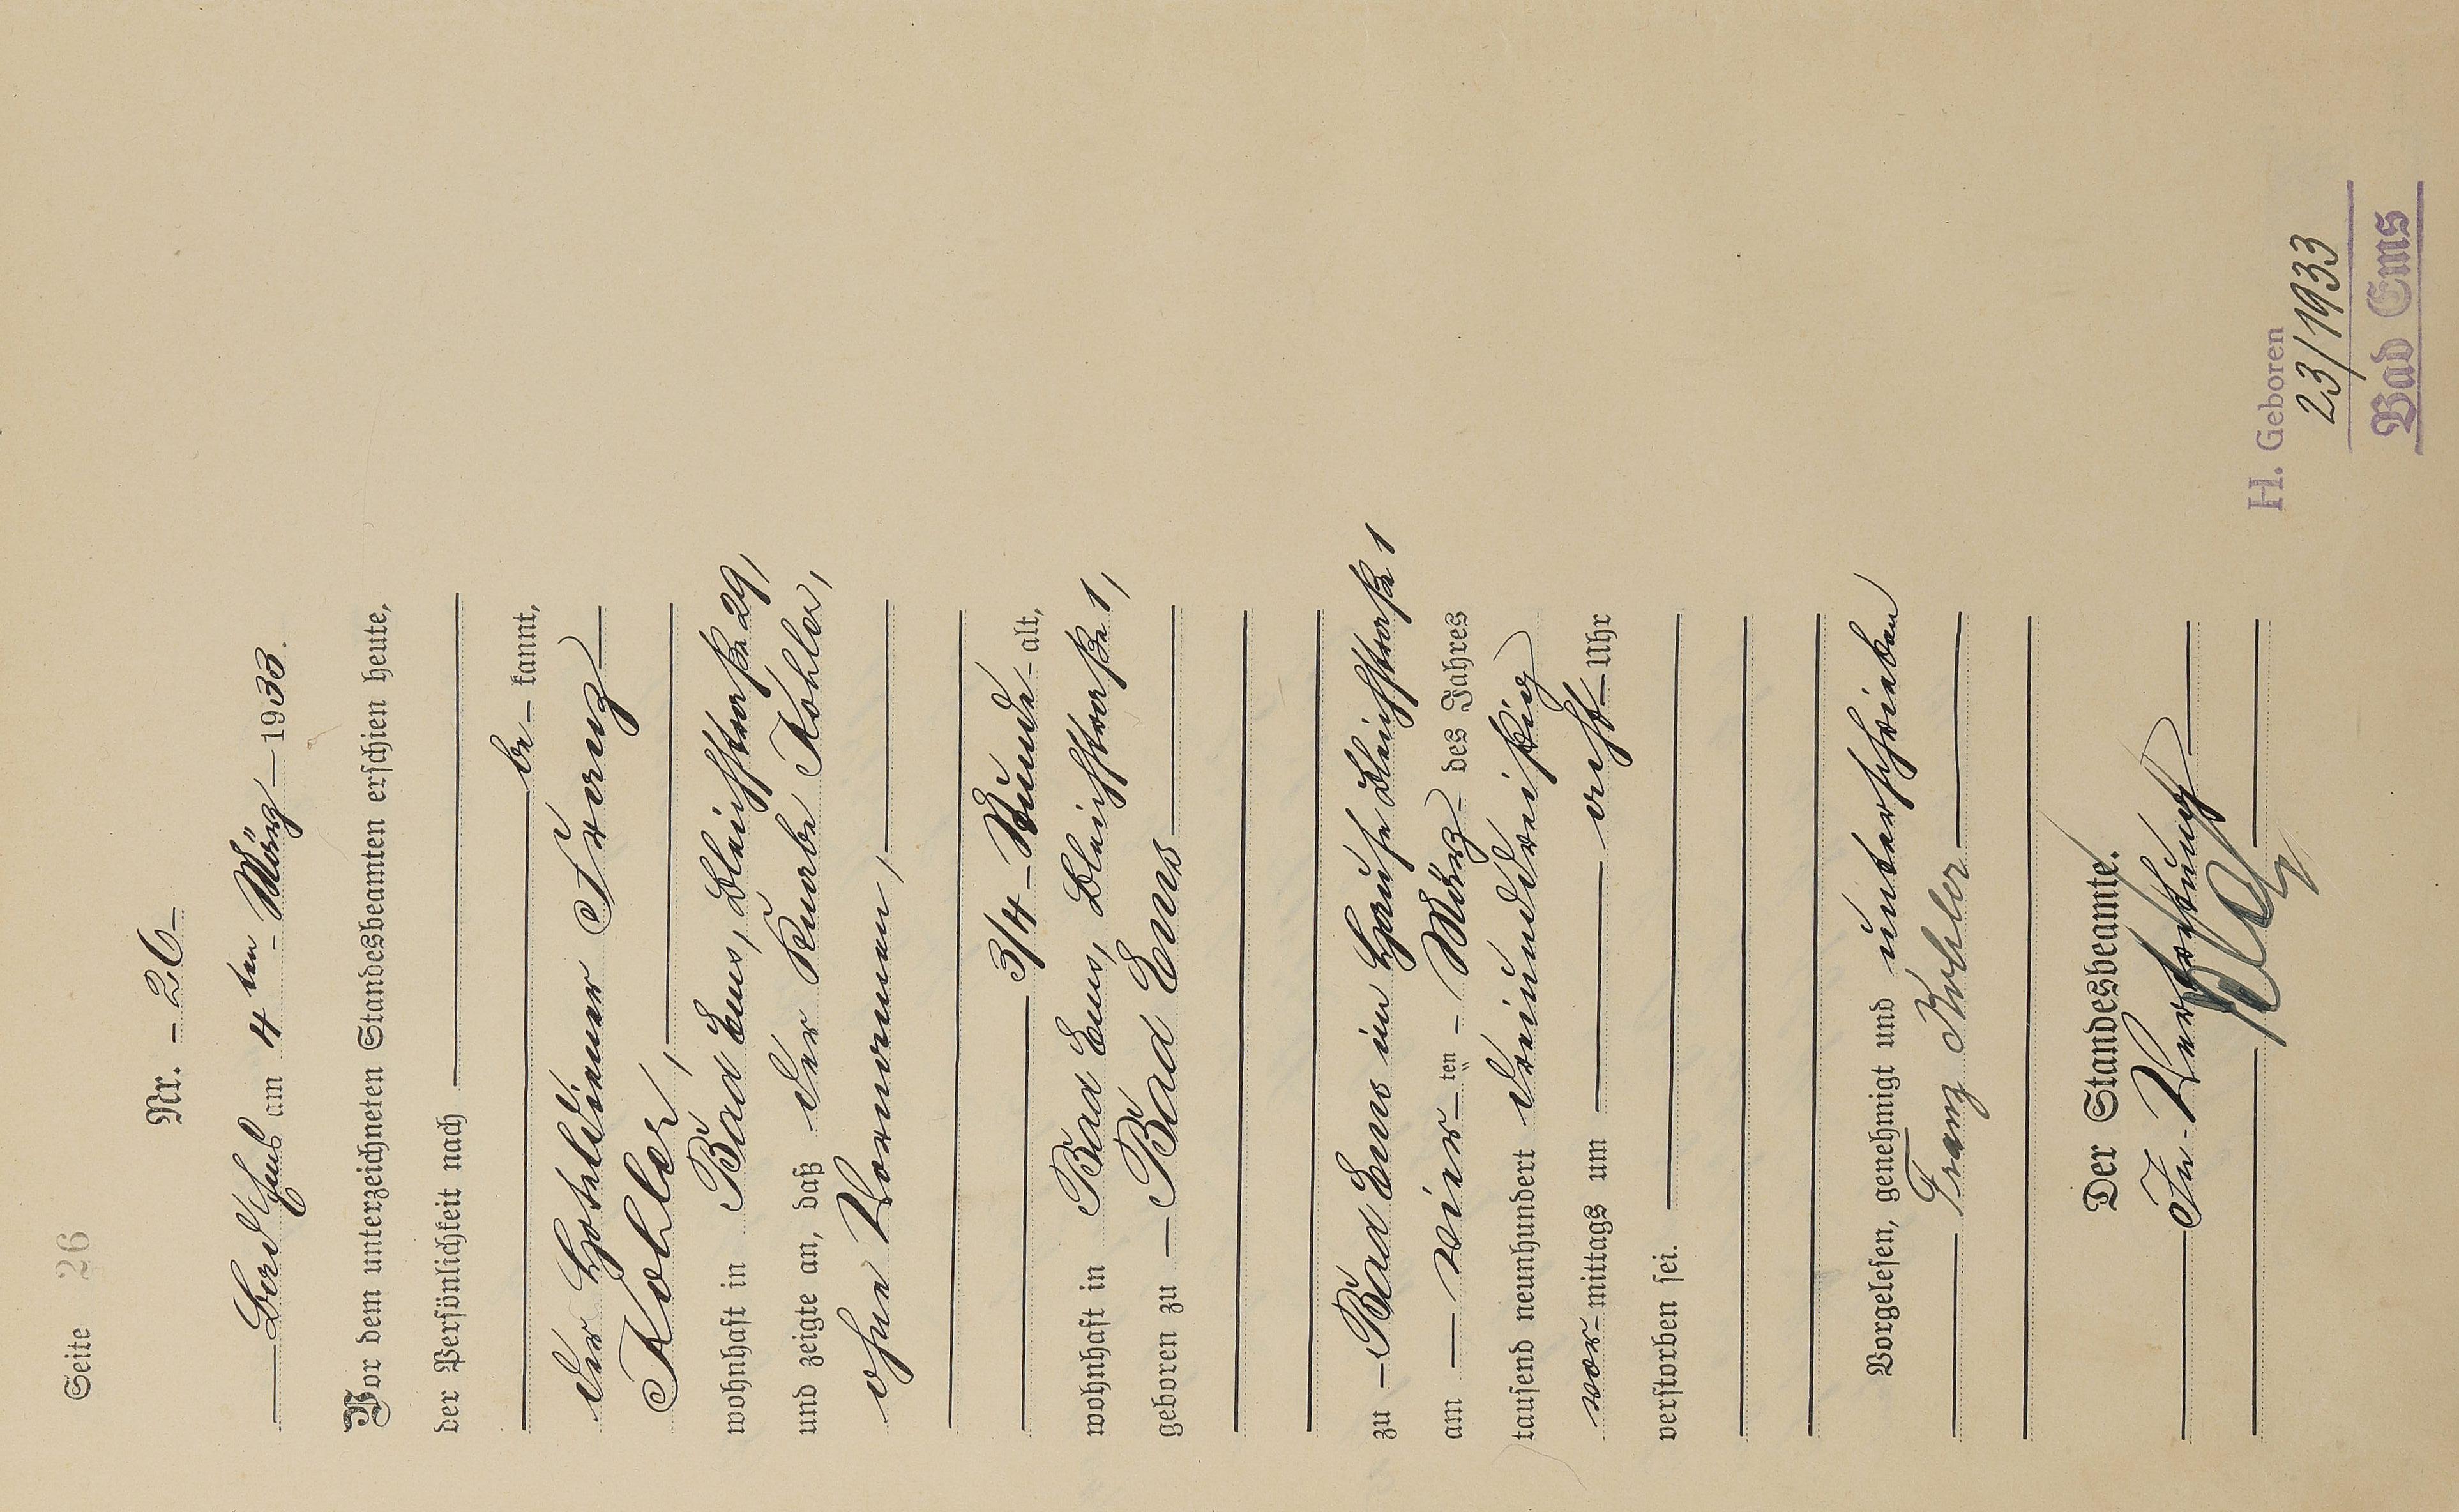 Seite 26
Nr. - 26 -
Bad Ems am 4ten März 1933.
Vor dem unterzeichneten Standesbeamten erschien heute,
der Persönlichkeit nach
be- kannt,
der Hoteldiener Franz
Kohler,
wohnhaft in Bad Ems, Bleichstraße 29,
und zeigte an, daß der Knabe Kohler,
ohne Vornamen,
3/4 Stunde alt,
wohnhaft in Bad Ems, Bleichstraße 1,
geboren zu Bad Ems
zu Bad Ems im Hause Bleichstraße 1
am vier ten März des Jahres
tausend neunhundert dreiunddreißig
vor mittags um acht Uhr
verstorben sei.
Vorgelesen, genehmigt und unterschrieben
Franz Kohler
Der Standesbeamte.
In Vertretung
H. Geboren
23/1933
Bad Ems